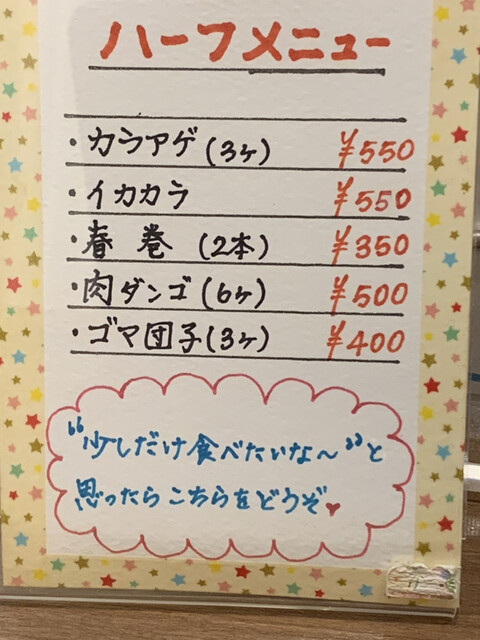 ハーフメニュー
・カラアゲ(3ヶ) ¥550
・イカカラ ¥550
・春巻(2本) ¥350
・肉ダンゴ(6ヶ) ¥500
・ゴマ団子(3ヶ) ¥400
“少しだけ食べたいな〜”と
思ったらこちらをどうぞ♥